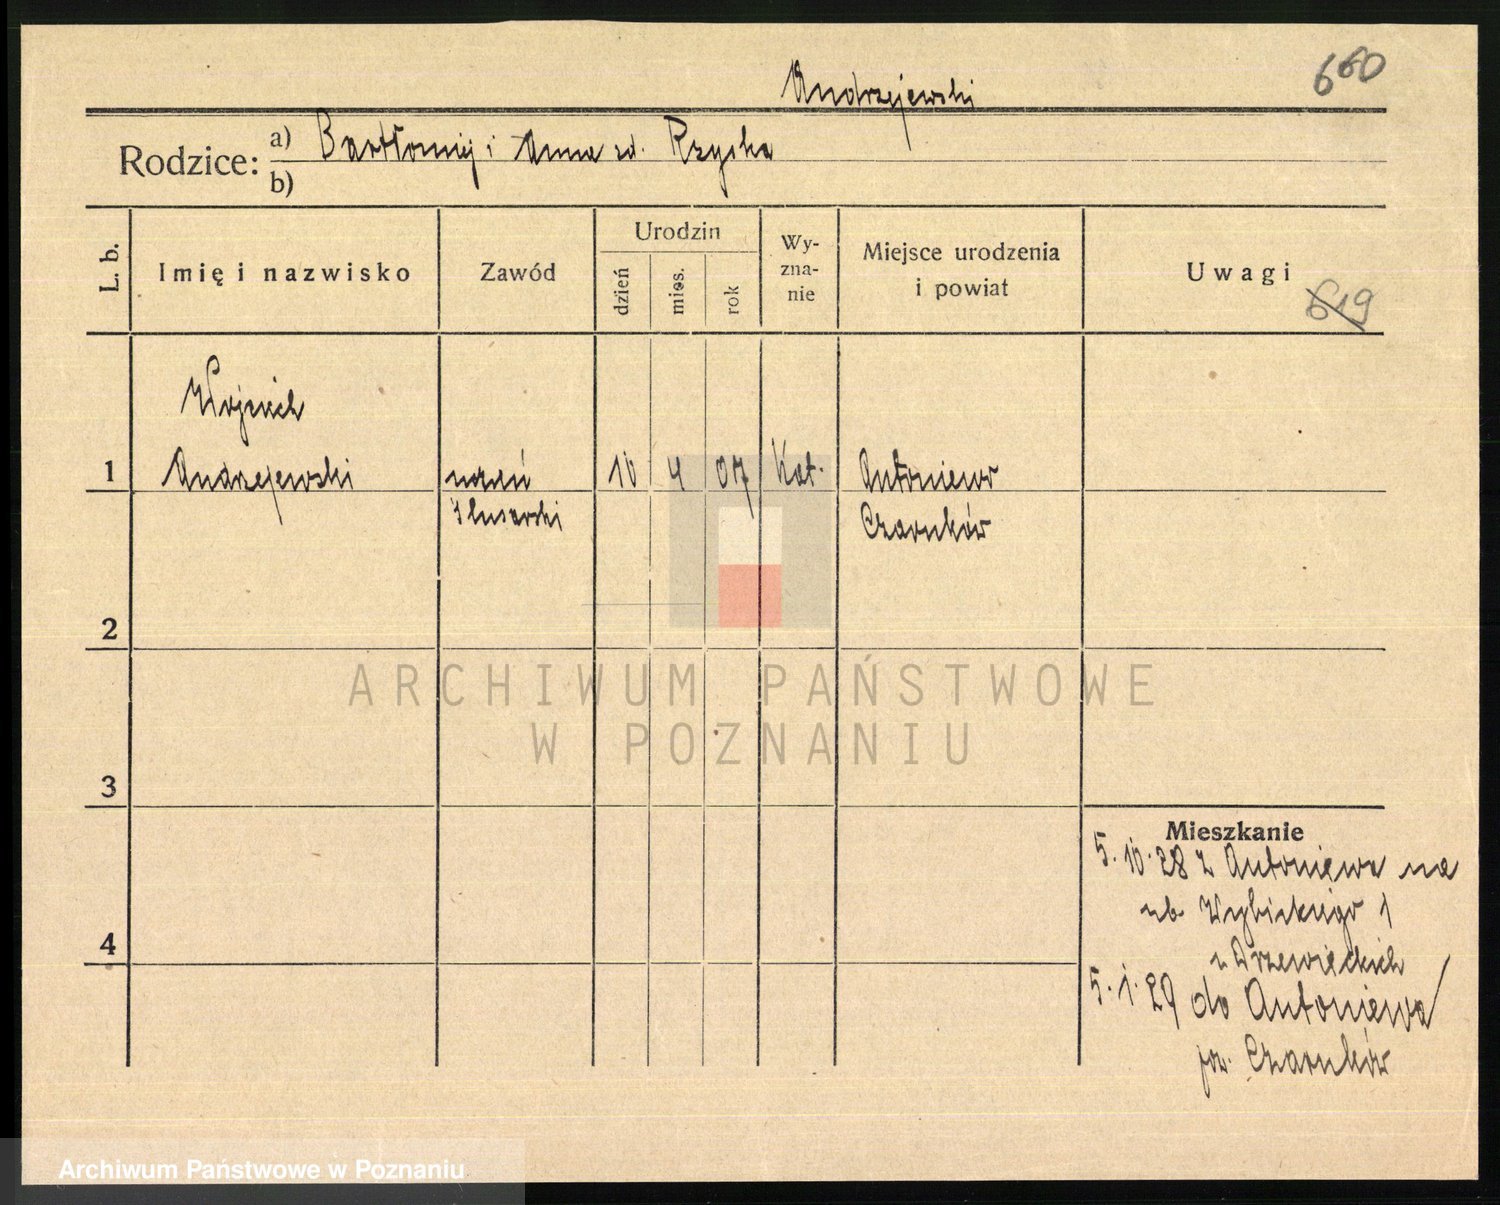 660
Andrzejewski
Rodzice: a) Bartłomiej i Anna zd. Rzyska
b)
L. b.
Imię i nazwisko
Zawód
Urodzin
dzień
mies.
rok
Wy-
zna-
nie
Miejsce urodzenia
i powiat
Uwagi
619
Wojciech
1 Andrzejewski uczeń 10 4 07 Kat. Antoniewo
ślusarski Czarnków
2
3
4
Mieszkanie
5.10.28 z Antoniewa na
Wybickiego 1
5.1.29 do Antoniewa
pow. Czarnków
ARCHIWUM PAŃSTWOWE
W POZNANIU
Archiwum Państwowe w Poznaniu